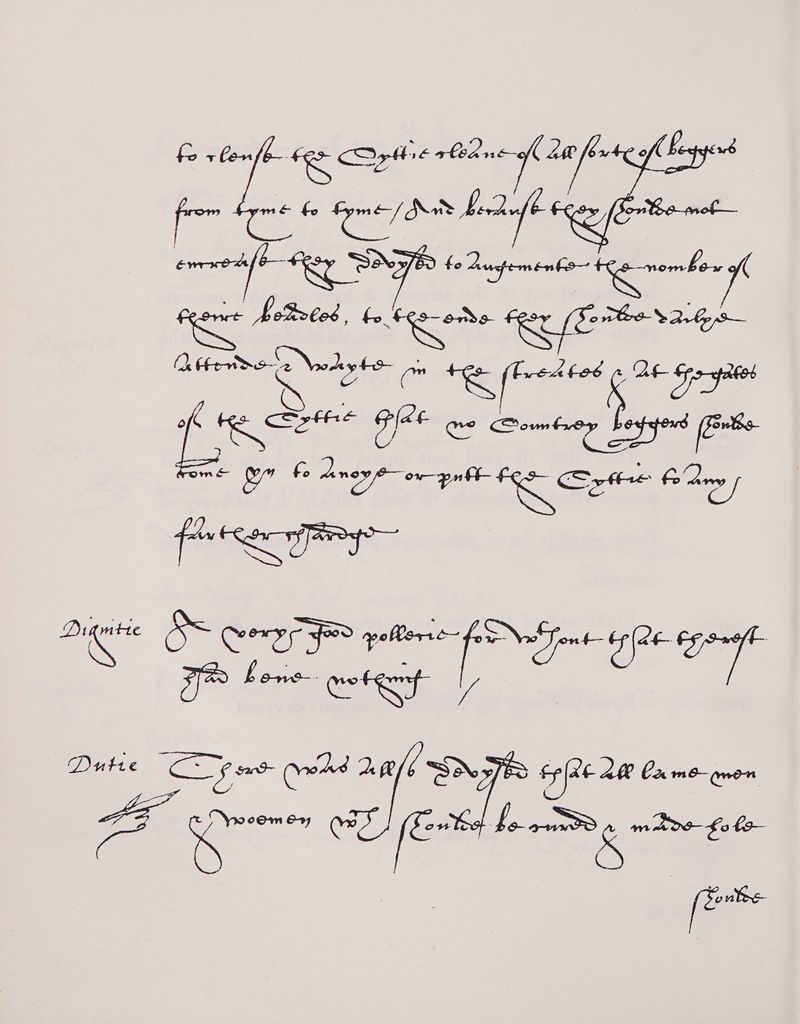 to clense the Cyttie cleane of all sorts of beggers
from tyme to tyme / And because they shoulde not
encrease they devysed to augemente the nomber of
theire beadles, to the ende they shoulde dailye
attende & wayte in the streates & at the gates
of the Cyttie that no Countrey beggers shoulde
come yn to anoye or putt the Cyttie to any /
farther chardge
Dignitie A very good pollecie for wthout that therest
had bene nothing /
Dutie There was allso devysed that all lame men
& woemen wch shoulde be cured & made hole
shoulde